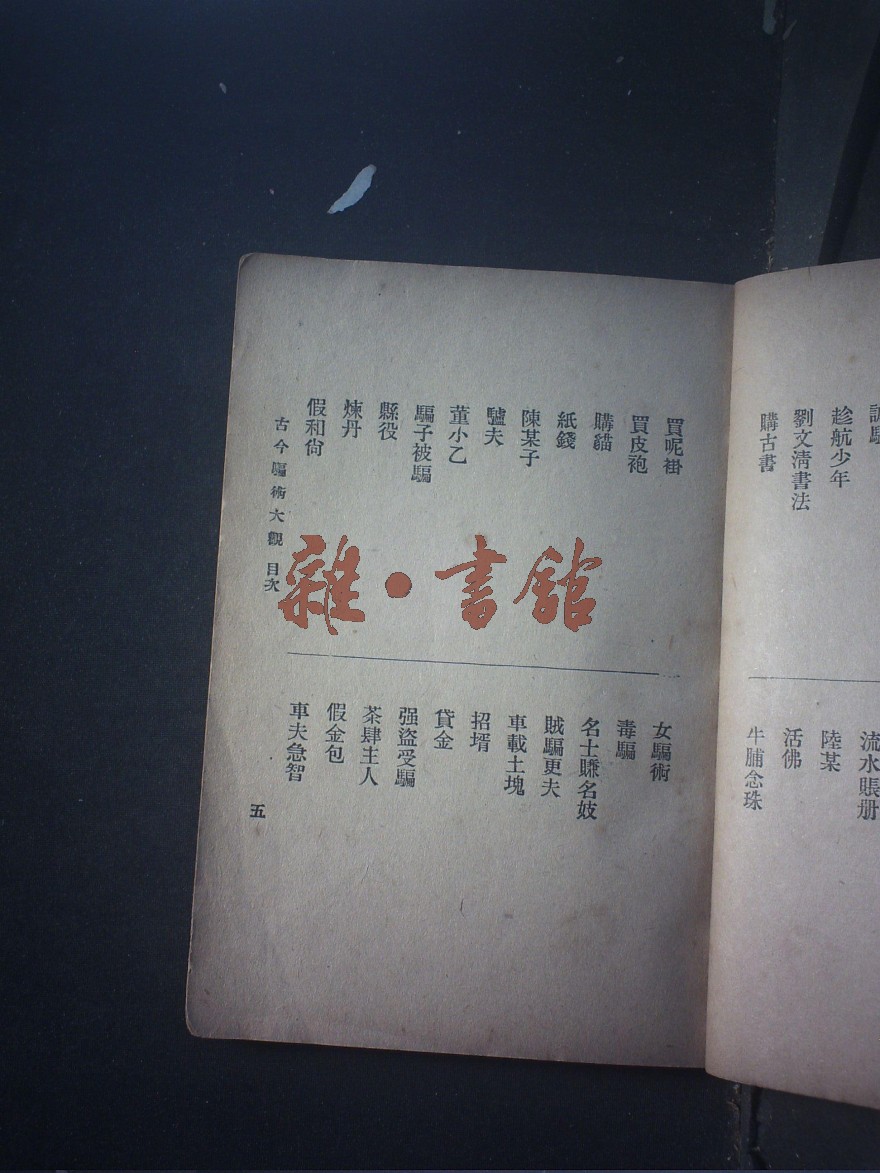 劉文清書法
趁航少年
購古書
流水賬册
陸某
活佛
牛脯念珠
買呢褂
買皮袍
購貓
紙錢
陳某子
驢夫
董小乙
騙子被騙
縣役
煉丹
假和尙
女騙術
毒騙
名士賺名妓
賊騙更夫
車載土塊
招壻
貸金
强盜受騙
茶肆主人
假金包
車夫急智
古今騙術大觀 目次
五
雜·書館